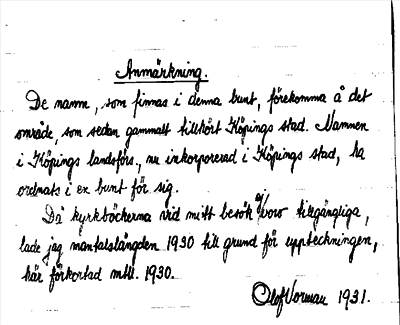 Anmärkning.
De namn, som finnas i denna bunt, förekomma å det
område, som sedan gammalt tillhört Köpings stad. Namnen
i Köpings landsförs., nu inkorporerad i Köpings stad, ha
ordnats i en bunt för sig.
Då kyrkböckerna vid mitt besök ej voro tillgängliga,
lade jag mantalslängden 1930 till grund för uppteckningen,
här förkortad mtl. 1930.
Olof Vorman 1931.